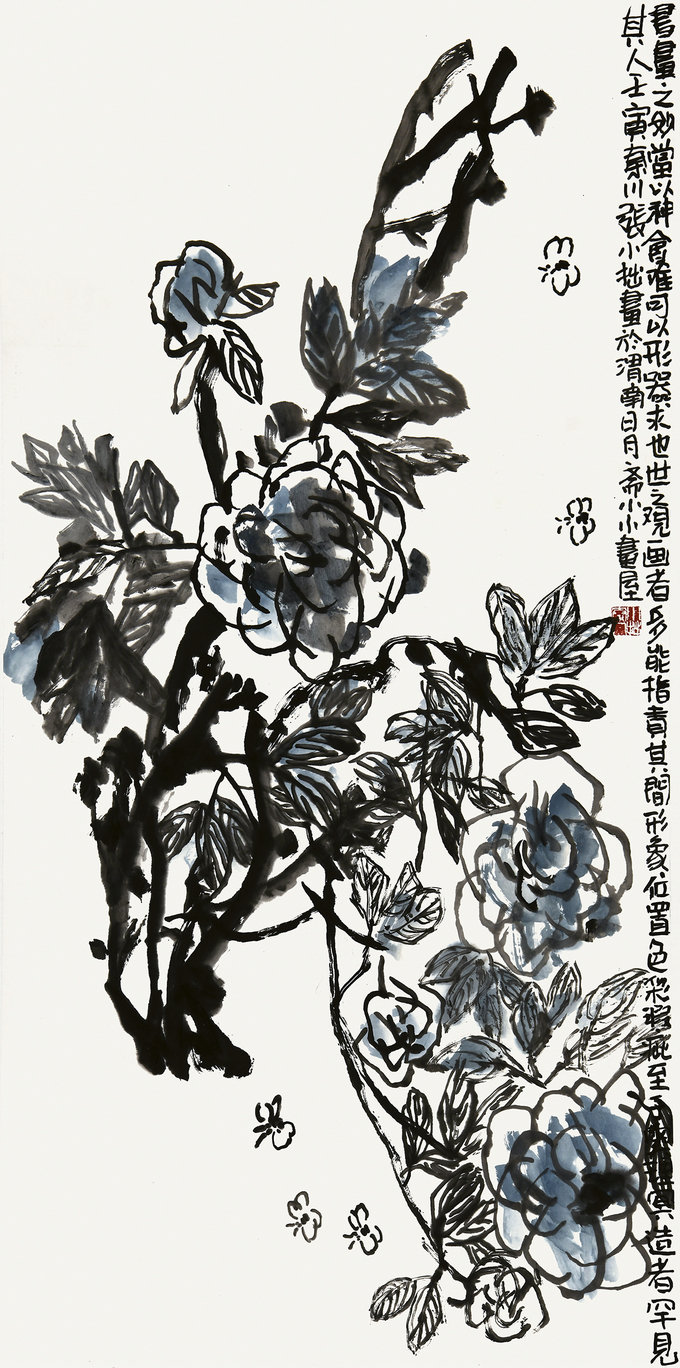 書畫之妙當以神會难可以形器求也世之观画者多能指責其間形象位置色彩瑕疵至造者罕見
其人壬寅秦川張小拙畫於渭南日月斋小小畫屋